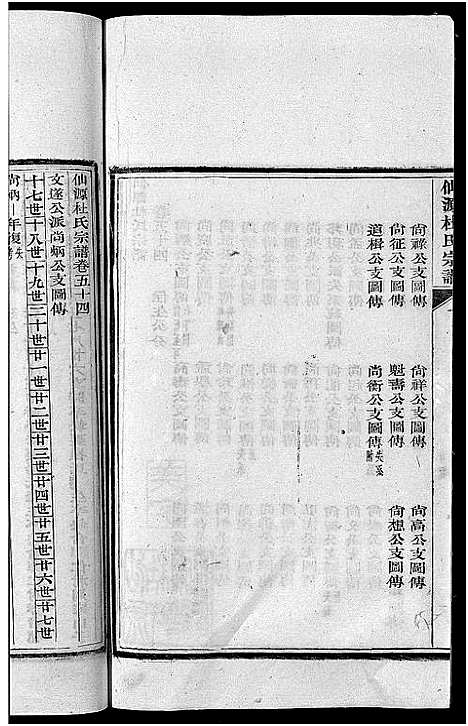 仙源杜氏宗譜
尙祿公支圖傳
尙祥公支圖傳
尙高公支圖傳
尙征公支圖傳
魁壽公支圖傳
尙想公支圖傳
道楫公支圖傳
尙衡公支圖傳失系附
仙源杜氏宗譜卷五十四
文遂公派尙炳公支圖傳
十七世十八世十九世二十世廿一世廿二世廿三世廿四世廿五世廿六世廿七世